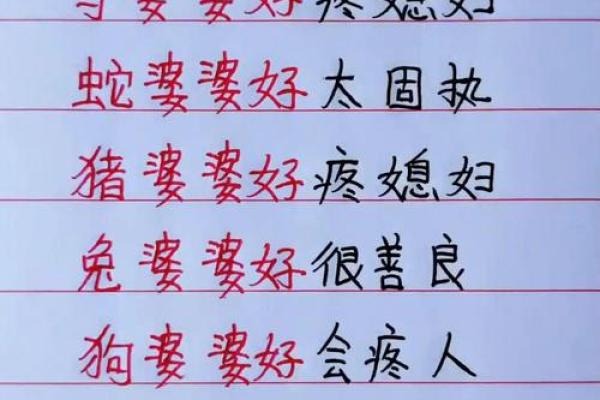 婆婆好疼媳妇
蛇婆婆好太固执
猪婆婆好疼媳妇
兔婆婆好很善良
狗婆婆好会疼人